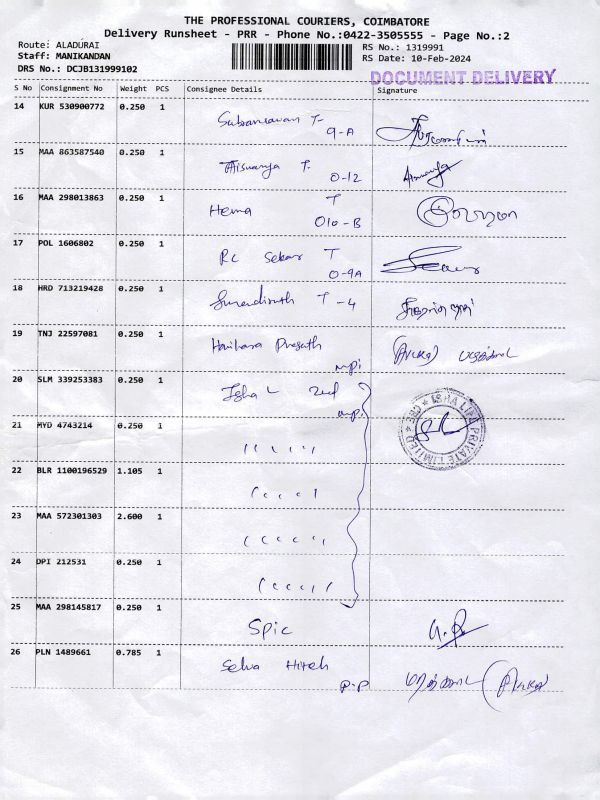 THE PROFESSIONAL COURIERS, COIMBATORE
Delivery Runsheet - PRR - Phone No.:0422-3505555 - Page No.:2
Route: ALADURAI
Staff: MANIKANDAN
DRS No.: DCJB131999102
RS No.: 1319991
RS Date: 10-Feb-2024
DOCUMENT DELIVERY
S No Consignment No Weight PCS Consignee Details Signature
14 KUR 530900772 0.250 1
T
9-A
15 MAA 863587540 0.250 1
Aiswarya T.
0-12
16 MAA 298013863 0.250 1
Hema T
010-B
17 POL 1606802 0.250 1
RC Sekar T
0-9A
18 HRD 713219428 0.250 1
T-4
19 TNJ 22597081 0.250 1
Harihara Prasath
20 SLM 339253383 0.250 1
Isha L
ISHA LIFE PRIVATE LIMITED
21 MYD 4743214 0.250 1
22 BLR 1100196529 1.105 1
23 MAA 572301303 2.600 1
24 DPI 212531 0.250 1
25 MAA 298145817 0.250 1
Spic
26 PLN 1489661 0.785 1
Selva Hitech
P.P